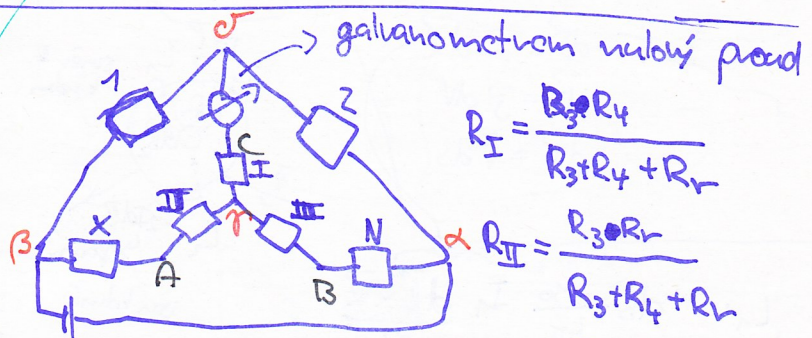 σ
galvanometrem nulový proud
1
2
C
I
II
III
γ
β
X
A
B
N
α
R_I = R_3 · R_4 / R_3 + R_4 + R_r
R_II = R_3 · R_r / R_3 + R_4 + R_r